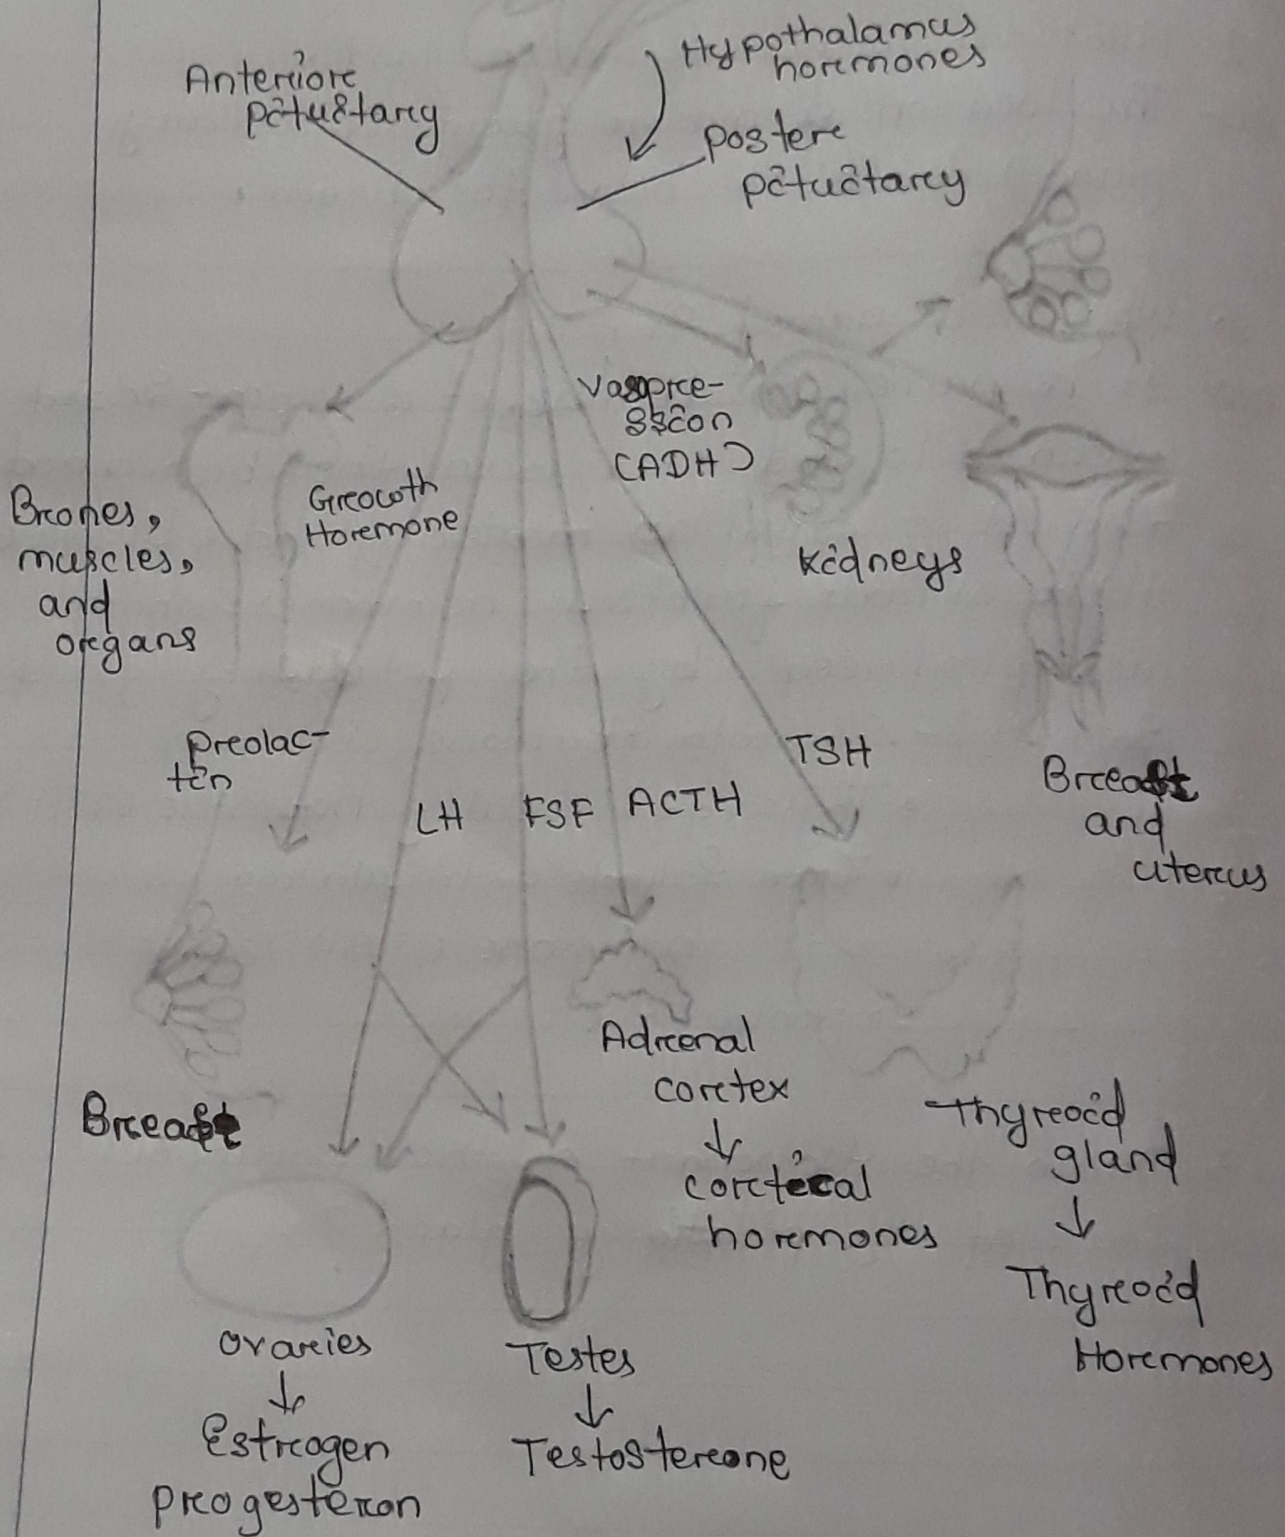 Hypothalamus
hormones
Anterior
pituitary
poster
pituitary
Vasopre-
ssion
(ADH)
Growth
Hormone
Brones,
muscles,
and
organs
kidneys
prolac-
tin
LH
FSF
ACTH
TSH
Breast
and
uterus
Breast
Adrenal
cortex
cortical
hormones
Thyroid
gland
Thyroid
Hormones
ovaries
Estrogen
progesteron
Testes
Testosterone